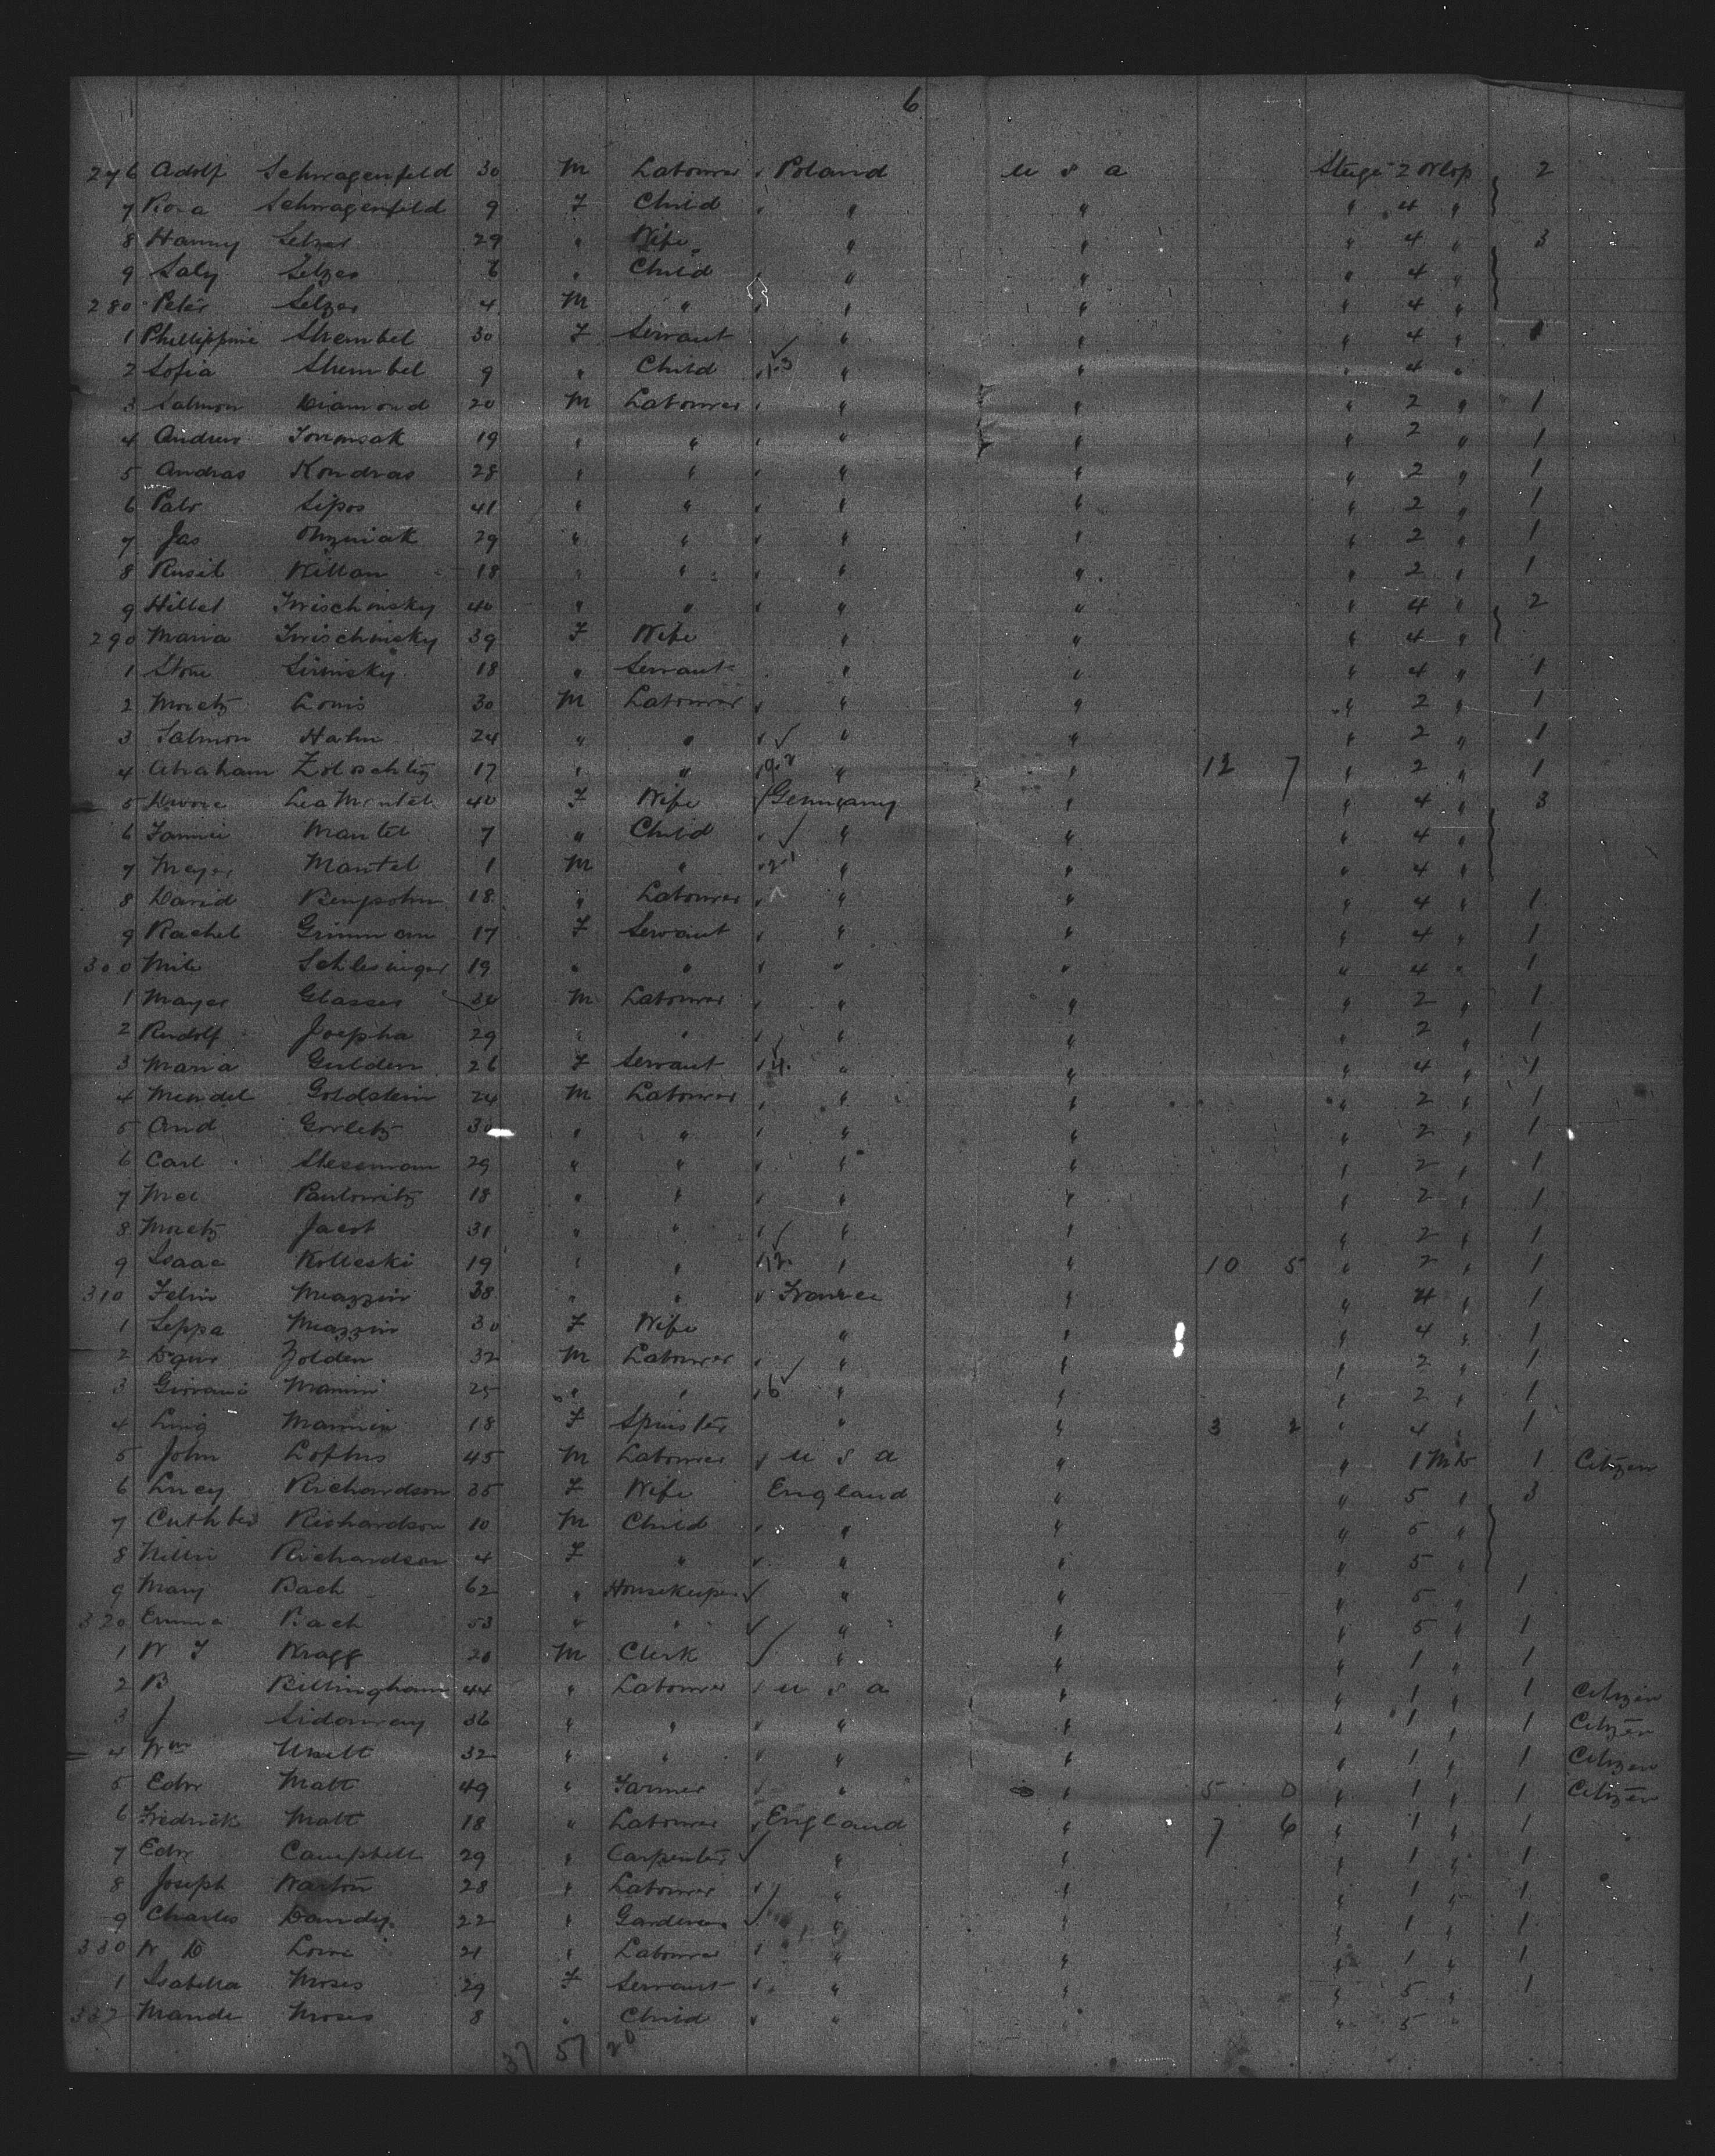 6
276 Adolf Schragenfeld 30 M Labourer Poland U S A Stuge 2 Orlop 2
7 Rosa Schragenfeld 9 F Child " " " 4 "
8 Hanny Selzer 29 " Wife " " " 4 " 3
9 Saly Selzer 6 " Child " " " 4 "
280 Peter Selzer 4 M " " " " 4 "
1 Phillippine Shembel 30 F Servant " " " 4 "
2 Sofia Shembel 9 " Child " " " 4 "
3 Salmon Diamond 20 M Labourer " " " 2 " 1
4 Andrew 19 " " " " " 2 " 1
5 Andras Kondras 28 " " " " " 2 " 1
6 Sipos 41 " " " " " 2 " 1
7 Jas 29 " " " " " 2 " 1
8 18 " " " " " 2 " 1
9 Hillel 40 " " " " " 4 " 2
290 Maria 39 F Wife " " " 4 "
1 18 " Servant " " " 4 " 1
2 Moretz Louis 30 M Labourer " " " 2 " 1
3 Salmon Hahn 24 " " " " " 2 " 1
4 Abraham Zoloschitz 17 " " " " 12 7 " 2 " 1
5 Lea Mantel 40 F Wife Germany " " 4 " 3
6 Fannie Mantel 7 " Child " " " 4 "
7 Meyer Mantel 1 M " " " " 4 "
8 David 18 " Labourer " " " 4 " 1
9 Rachel Grinman 17 F Servant " " " 4 " 1
300 Schlesinger 19 " " " " " 4 " 1
1 Mayer Glasser 30 M Labourer " " " 2 " 1
2 Rudolf Joepha 29 " " " " " 2 " 1
3 Maria Gulden 26 F Servant " " " 4 " 1
4 Mendel Goldstein 24 M Labourer " " " 2 " 1
5 And Gorletz 30 " " " " " 2 " 1
6 Carl Stessman 29 " " " " " 2 " 1
7 Paulowitz 18 " " " " " 2 " 1
8 Moretz Jacob 31 " " " " " 2 " 1
9 Isaac Kolleski 19 " " " " 10 5 " 2 " 1
310 Miazzin 38 " " France " " 4 " 1
1 Seppa Miazzin 30 F Wife " " " 4 " 1
2 Zolden 32 M Labourer " " " 2 " 1
3 Giovani Manini 25 " " 6 " " " 2 " 1
4 18 F Spinster " " 3 2 " 4 " 1
5 John Loftus 45 M Labourer U S A " " 1 1 Citizen
6 Lucy Richardson 35 F Wife England " " 5 " 3
7 Cuthbert Richardson 10 M Child " " " 5 "
8 Nellie Richardson 4 F " " " " 5 "
9 Mary Bach 62 " Housekeeper " " " 5 " 1
320 Emma Bach 53 " " " " " 5 " 1
1 W J Wragg 20 M Clerk " " " 1 " 1
2 B Billingham 44 " Labourer U S A " " 1 " 1 Citizen
3 J Sidonway 36 " " " " " 1 " 1 Citizen
4 Wm 32 " " " " " 1 " 1 Citizen
5 Edw Matt 49 " Farmer " " 5 0 " 1 " 1 Citizen
6 Fredrick Matt 18 " Labourer England " 7 6 " 1 " 1
7 Edw Campbell 29 " Carpenter " " " 1 " 1
8 Joseph Warton 28 " Labourer " " " 1 " 1
9 Charles Dandy 22 " Gardener " " " 1 " 1
330 W Lowe 21 " Labourer " " " 1 " 1
1 Isabella Moses 29 F Servant " " " 5 " 1
332 Maude Moses 8 " Child " " " 5 "
37 57 20